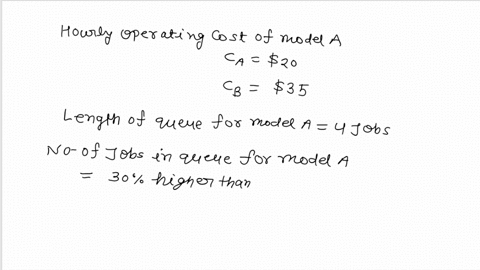 Hourly operating cost of model A
CA = $20
CB = $35
Length of queue for model A = 4 Jobs
No-of Jobs in queue for model A
= 30% higher than